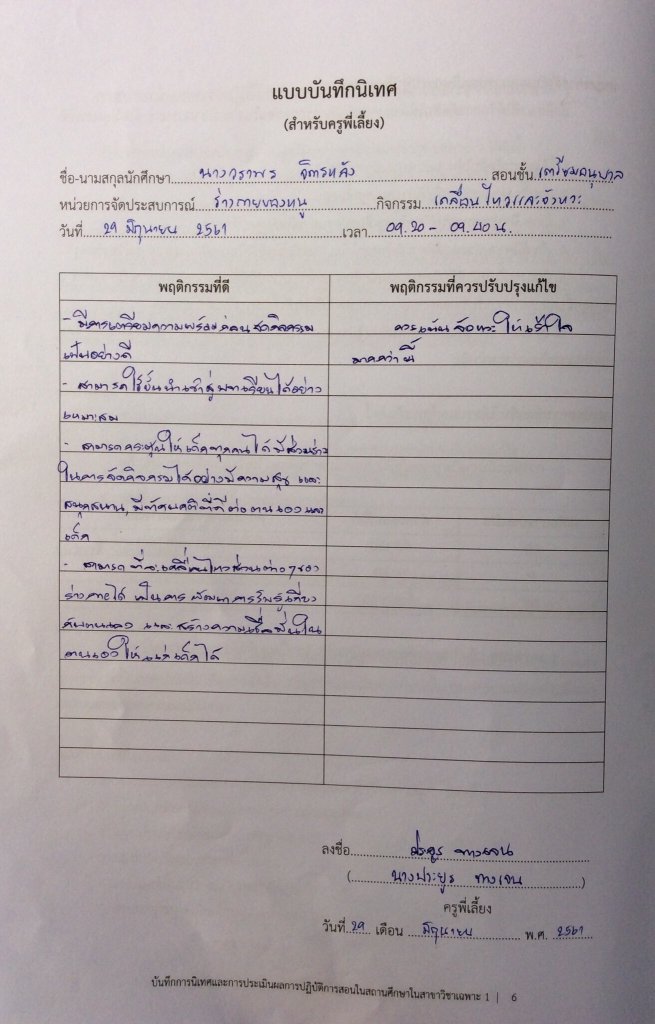 แบบบันทึกนิเทศ
(สำหรับครูพี่เลี้ยง)
ชื่อ-นามสกุลนักศึกษา นางวราพร จิตรหลัง สอนชั้น เตรียมอนุบาล
หน่วยการจัดประสบการณ์ ร่างกายของหนู กิจกรรม เคลื่อนไหวและจังหวะ
วันที่ 29 มิถุนายน 2561 เวลา 09.20 - 09.40 น.
พฤติกรรมที่ดี พฤติกรรมที่ควรปรับปรุงแก้ไข
- มีการเตรียมความพร้อมก่อนจัดกิจกรรม ควรเน้นจังหวะให้เร้าใจ
เป็นอย่างดี มากกว่านี้
- สามารถใช้ขั้นนำเข้าสู่บทเรียนได้อย่าง
เหมาะสม
- สามารถกระตุ้นให้เด็กทุกคนได้มีส่วนร่วม
ในการจัดกิจกรรมได้อย่างมีความสุข และ
สนุกสนาน, มีทัศนคติที่ดีต่อตนเองและ
เด็ก
- สามารถที่จะเคลื่อนไหวส่วนต่างๆของ
ร่างกายได้ เป็นการพัฒนาการรับรู้เกี่ยว
กับตนเอง และสร้างความเชื่อมั่นใน
ตนเองให้แก่เด็กได้
ลงชื่อ ประยูร ทางเจน
(นางประยูร ทางเจน)
ครูพี่เลี้ยง
วันที่ 29 เดือน มิถุนายน พ.ศ. 2561
บันทึกการนิเทศและการประเมินผลการปฏิบัติการสอนในสถานศึกษาในสาขาวิชาเฉพาะ 1 | 6